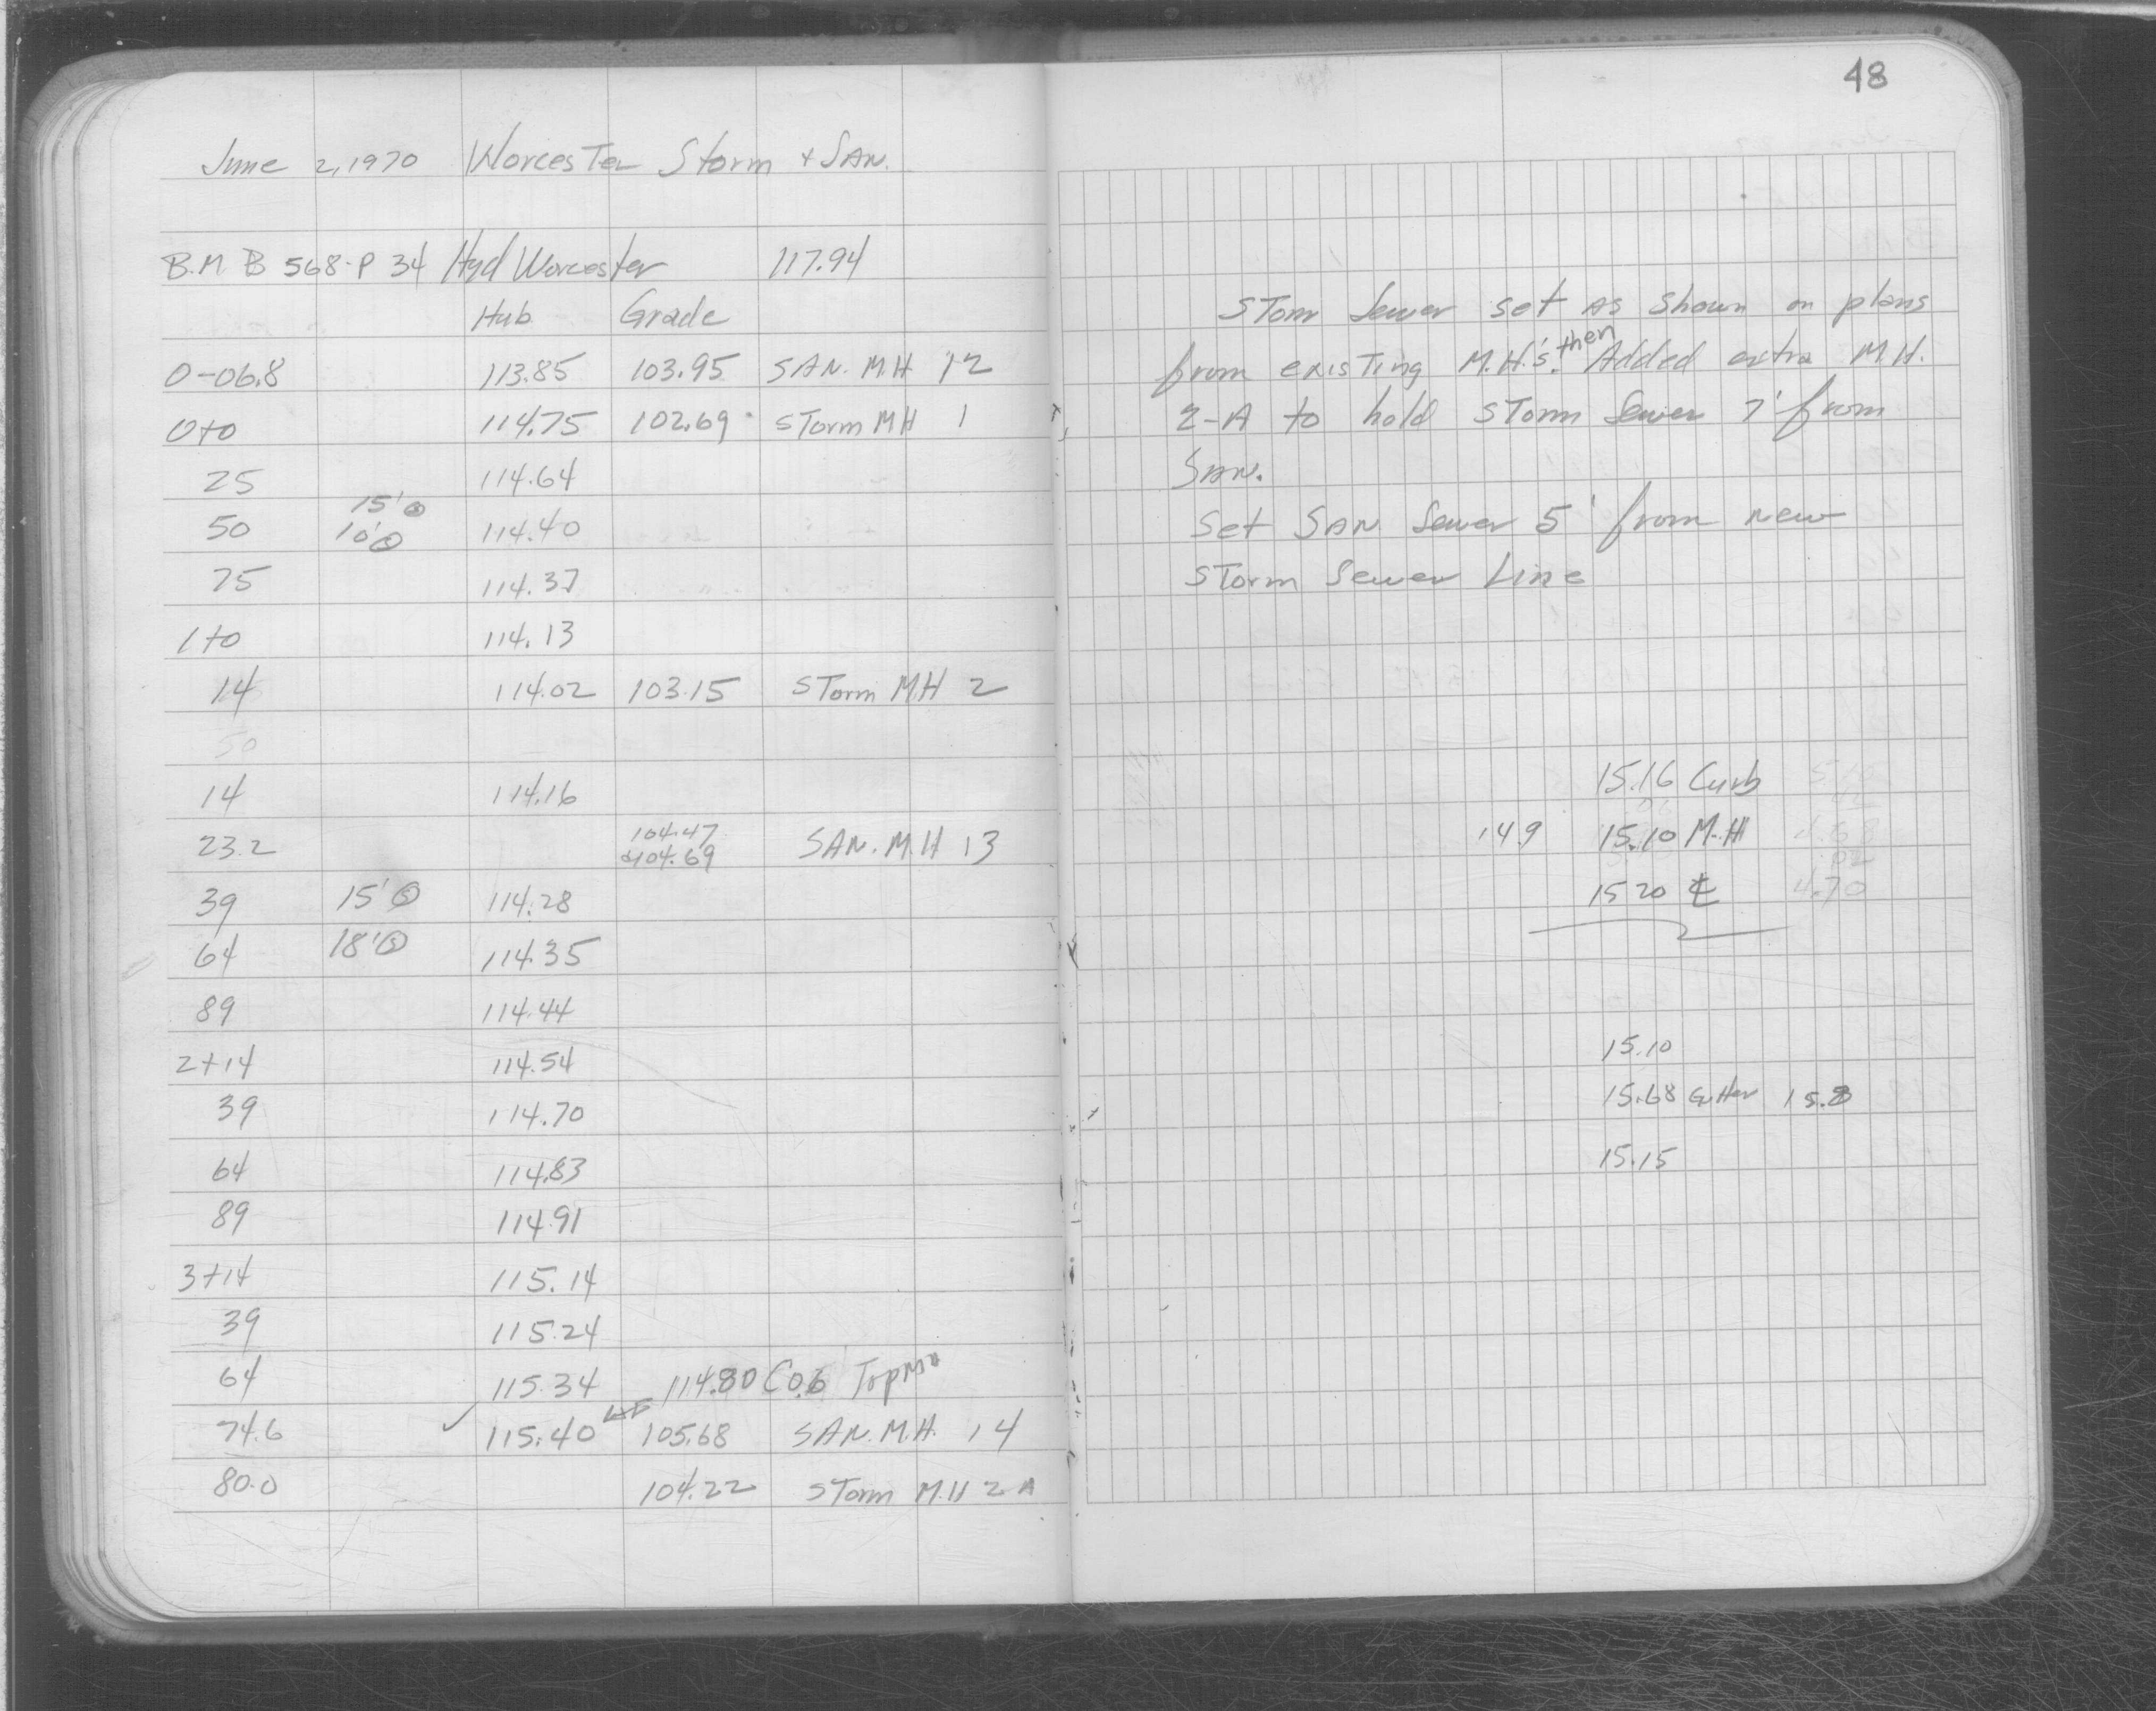 48
June 2, 1970 Worcester Storm + SAN.
B.M. B 568-P 34 Hyd Worcester 117.94
Hub Grade
0-06.8 113.85 103.95 SAN. M.H 12
0+0 114.75 102.69 STorm MH 1
25 114.64
15'
50 10' 114.40
75 114.37
1+0 114.13
14 114.02 103.15 STorm M.H 2
50
14 114.16
104.47
23.2 104.69 SAN. M.H 13
39 15' 114.28
64 18' 114.35
89 114.44
2+14 114.54
39 114.70
64 114.83
89 114.91
3+14 115.14
39 115.24
64 115.34 114.80 C0.6 Top MH
74.6 ✓ 115.40 105.68 SAN. M.H. 14
80.0 104.22 STorm M.H 2A
STorm Sewer set AS Shown on plans
from exisTing M.H.'s. then Added extra M.H.
2-A to hold STorm Sewer 7' from
SAN.
Set SAN Sewer 5' from new
STorm Sewer Line
15.16 Curb
14.9 15.10 M.H
15 20 ℄ 4.70
15.10
15.68 Gutter 15.8
15.15